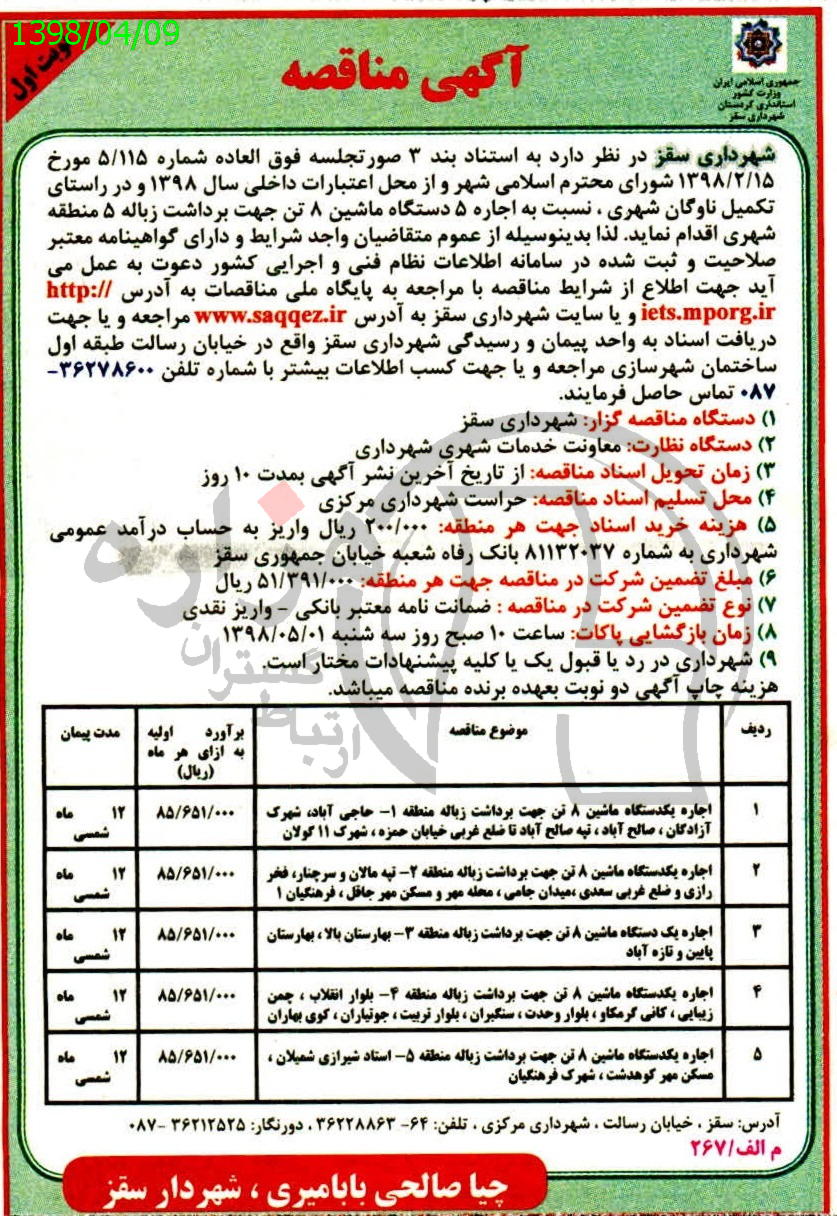 1398/04/09
نوبت اول
آگهی مناقصه
جمهوری اسلامی ایران
وزارت کشور
استانداری کردستان
شهرداری سقز
شهرداری سقز در نظر دارد به استناد بند ۳ صورتجلسه فوق العاده شماره ۵/۱۱۵ مورخ
۱۳۹۸/۲/۱۵ شورای محترم اسلامی شهر و از محل اعتبارات داخلی سال ۱۳۹۸ و در راستای
تکمیل ناوگان شهری ، نسبت به اجاره ۵ دستگاه ماشین ۸ تن جهت برداشت زباله ۵ منطقه
شهری اقدام نماید. لذا بدینوسیله از عموم متقاضیان واجد شرایط و دارای گواهینامه معتبر
صلاحیت و ثبت شده در سامانه اطلاعات نظام فنی و اجرایی کشور دعوت به عمل می
آید جهت اطلاع از شرایط مناقصه با مراجعه به پایگاه ملی مناقصات به آدرس http://
iets.mporg.ir و یا سایت شهرداری سقز به آدرس www.saqqez.ir مراجعه و یا جهت
دریافت اسناد به واحد پیمان و رسیدگی شهرداری سقز واقع در خیابان رسالت طبقه اول
ساختمان شهرسازی مراجعه و یا جهت کسب اطلاعات بیشتر با شماره تلفن ۳۶۲۷۸۶۰۰-
۰۸۷ تماس حاصل فرمایند.
۱) دستگاه مناقصه گزار: شهرداری سقز
۲) دستگاه نظارت: معاونت خدمات شهری شهرداری
۳) زمان تحویل اسناد مناقصه: از تاریخ آخرین نشر آگهی بمدت ۱۰ روز
۴) محل تسلیم اسناد مناقصه: حراست شهرداری مرکزی
۵) هزینه خرید اسناد جهت هر منطقه: ۲۰۰/۰۰۰ ریال واریز به حساب درآمد عمومی
شهرداری به شماره ۸۱۱۳۲۰۳۷ بانک رفاه شعبه خیابان جمهوری سقز
۶) مبلغ تضمین شرکت در مناقصه جهت هر منطقه: ۵۱/۳۹۱/۰۰۰ ریال
۷) نوع تضمین شرکت در مناقصه : ضمانت نامه معتبر بانکی - واریز نقدی
۸) زمان بازگشایی پاکات: ساعت ۱۰ صبح روز سه شنبه ۱۳۹۸/۰۵/۰۱
۹) شهرداری در رد یا قبول یک یا کلیه پیشنهادات مختار است.
هزینه چاپ آگهی دو نوبت بعهده برنده مناقصه میباشد.
ردیف موضوع مناقصه برآورد اولیه مدت پیمان
به ازای هر ماه
(ریال)
۱ اجاره یکدستگاه ماشین ۸ تن جهت برداشت زباله منطقه ۱- حاجی آباد، شهرک ۸۵/۶۵۱/۰۰۰ ۱۲ ماه
آزادگان ، صالح آباد ، تپه صالح آباد تا ضلع غربی خیابان حمزه ، شهرک ۱۱ کولان شمسی
۲ اجاره یکدستگاه ماشین ۸ تن جهت برداشت زباله منطقه ۲- تپه مالان و سرچنار، فخر ۸۵/۶۵۱/۰۰۰ ۱۲ ماه
رازی و ضلع غربی سعدی ،میدان جامی ، محله مهر و مسکن مهر جاقل ، فرهنگیان ۱ شمسی
۳ اجاره یک دستگاه ماشین ۸ تن جهت برداشت زباله منطقه ۳- بهارستان بالا ، بهارستان ۸۵/۶۵۱/۰۰۰ ۱۲ ماه
پایین و تازه آباد شمسی
۴ اجاره یکدستگاه ماشین ۸ تن جهت برداشت زباله منطقه ۴- بلوار انقلاب ، چمن ۸۵/۶۵۱/۰۰۰ ۱۲ ماه
زیبایی ، کانی گرمکاو ، بلوار وحدت ، سنگبران ، بلوار تربیت ، جوتیاران ، کوی بهاران شمسی
۵ اجاره یکدستگاه ماشین ۸ تن جهت برداشت زباله منطقه ۵- استاد شیرازی شمیلان ، ۸۵/۶۵۱/۰۰۰ ۱۲ ماه
مسکن مهر کوهدشت ، شهرک فرهنگیان شمسی
آدرس: سقز ، خیابان رسالت ، شهرداری مرکزی ، تلفن: ۶۴- ۳۶۲۲۸۸۶۳ ، دورنگار: ۳۶۲۱۲۵۲۵ -۰۸۷
م الف/۲۶۷
چیا صالحی بابامیری ، شهردار سقز